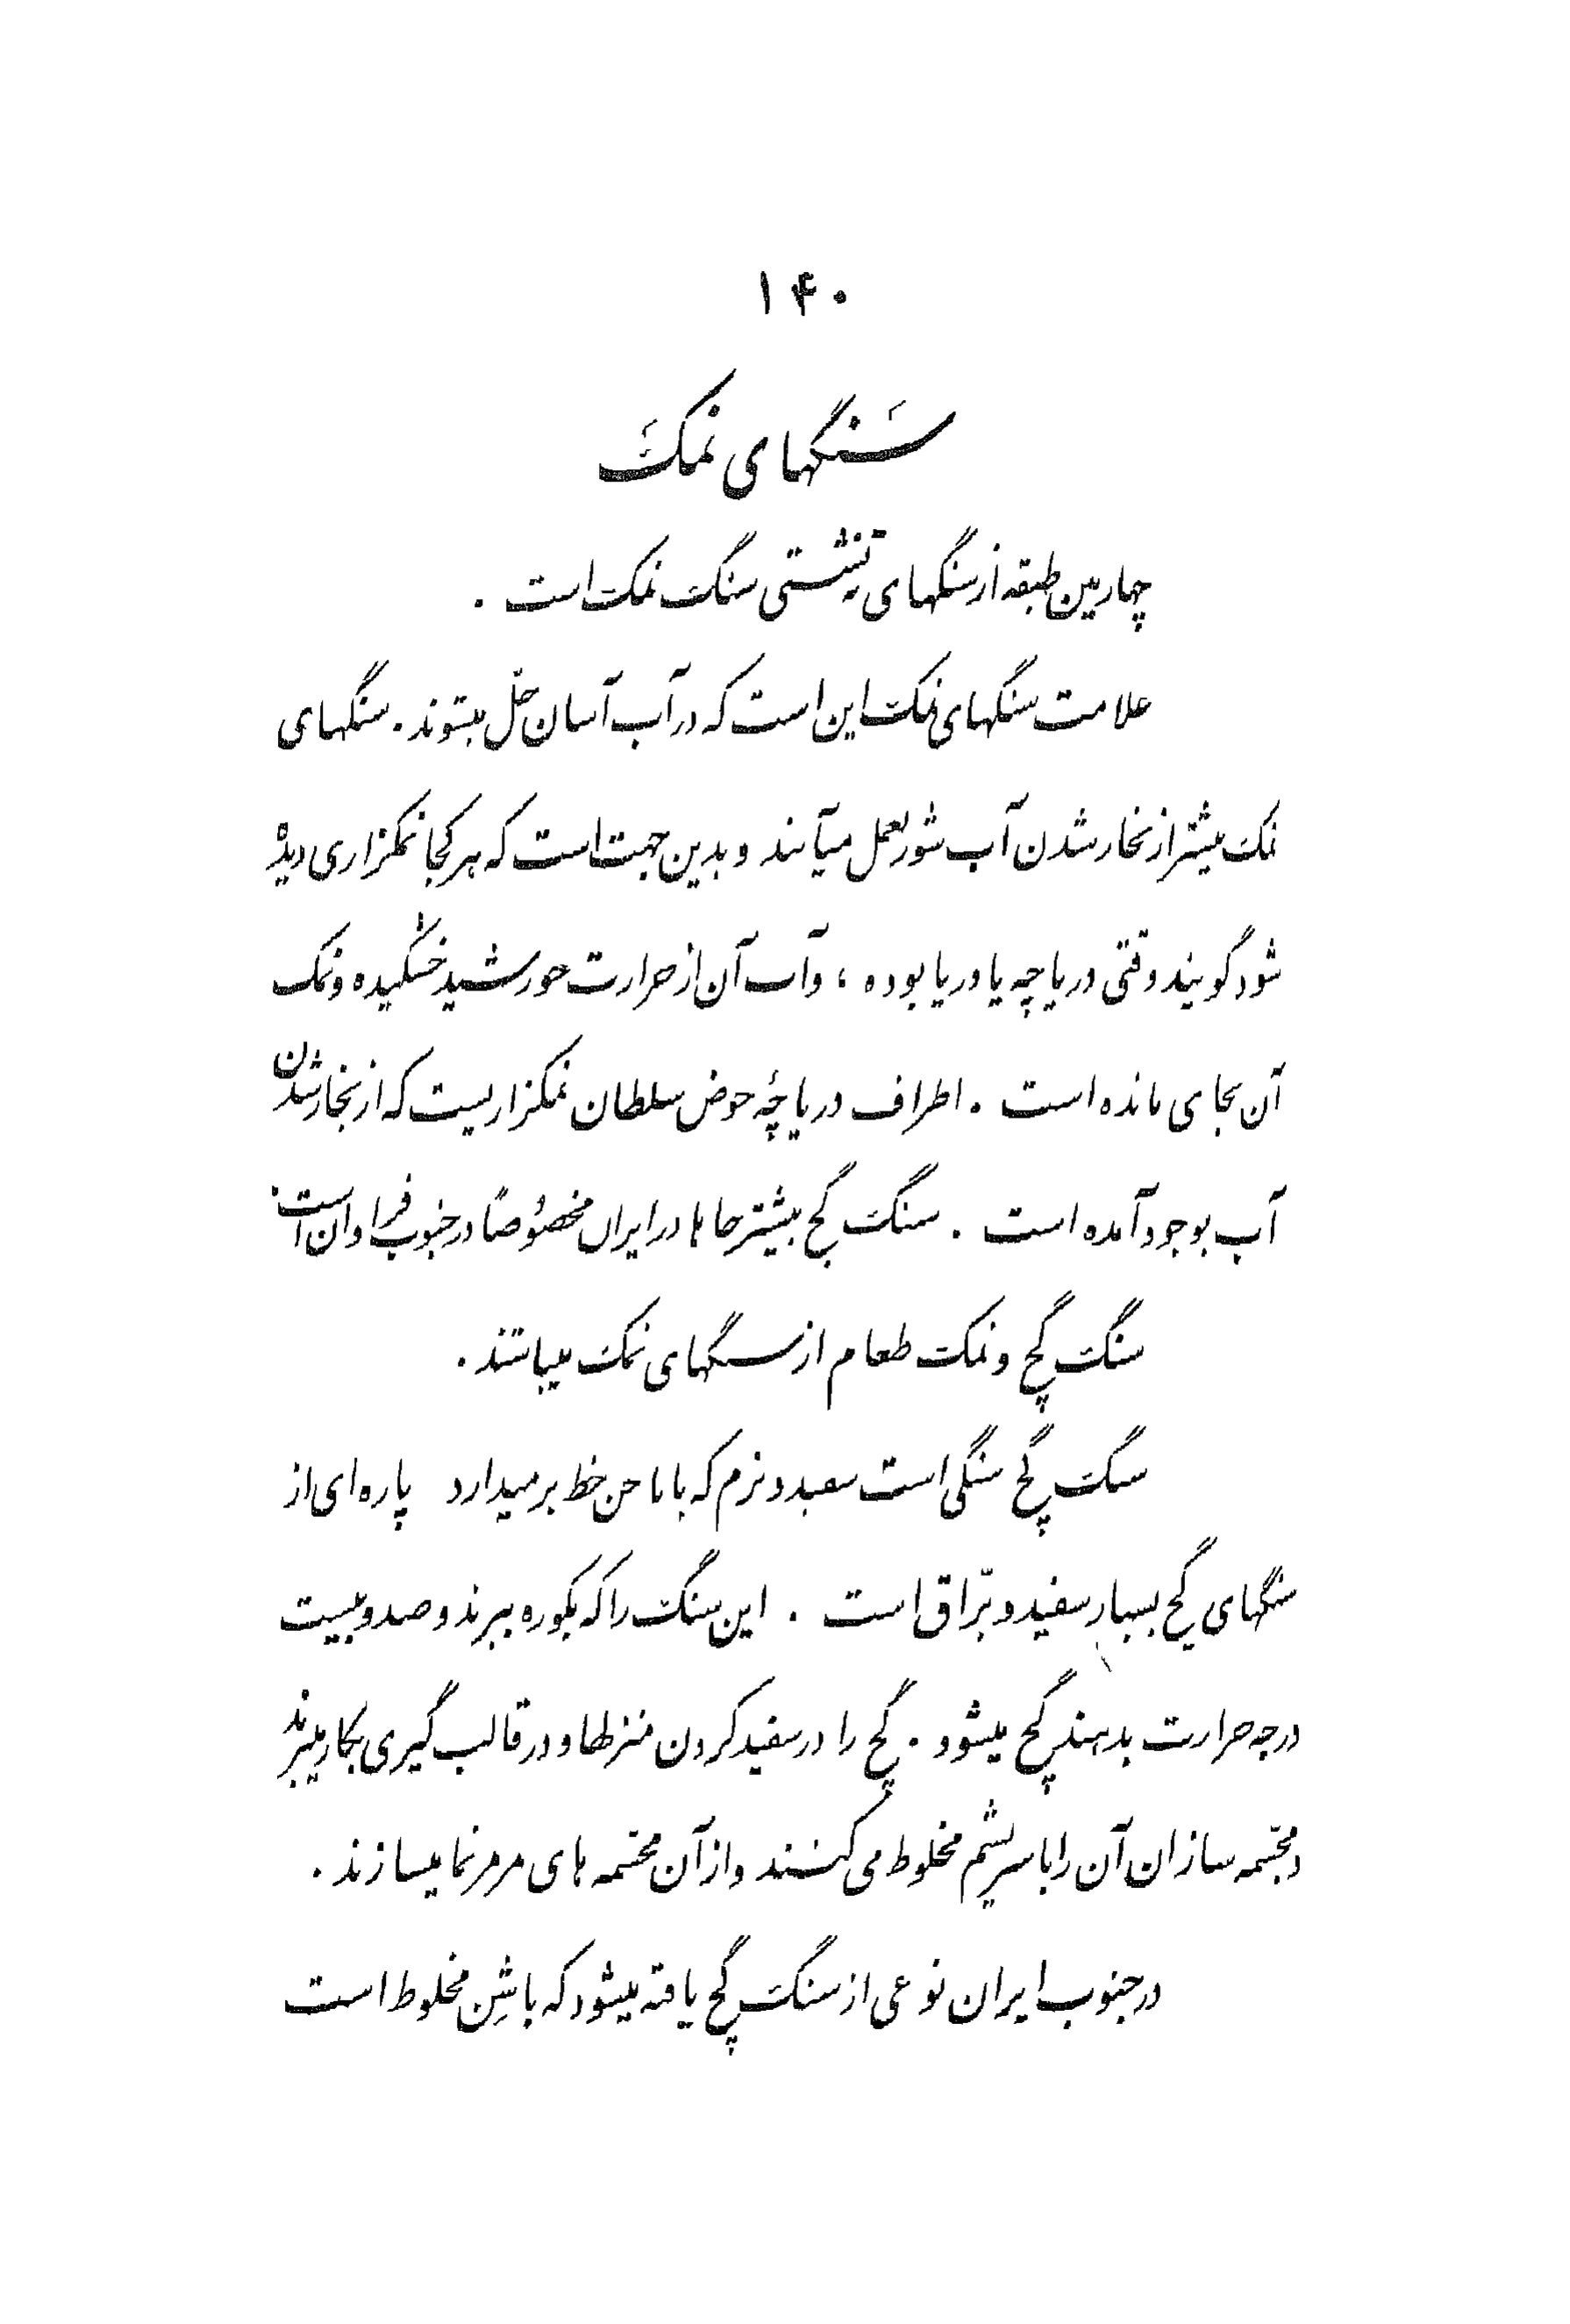 ۱۴۰
سَنگهای نمکَ
چهارمین طبقه از سنگهای ته نشستی سنگ نمک است .
علامت سنگهای نمک این است که در آب آسان حلّ میشوند . سنگهای
نمک بیشتر از بخار شدن آب شور بعمل میآیند و بدین جهت است که هر کجا نمکزاری دیده
شود گویند وقتی دریاچه یا دریا بوده ، و آب آن از حرارت خورشید خشکیده و نمک
آن بجای مانده است . اطراف دریاچهٔ حوض سلطان نمکزاریست که از بخار شدن
آب بوجود آمده است . سنگ گچ بیشتر جاها در ایران مخصوُصاً در جنوب فراوان است .
سنگ گچ و نمک طعام از سنگهای نمک میباشند .
سنگ گچ سنگی است سفید و نرم که با ناخن خط بر میدارد پاره ای از
سنگهای گچ بسیار سفید و برّاق است . این سنگ را که بکوره ببرند و صد و بیست
درجه حرارت بدهند گچ میشود . گچ را در سفید کردن منزلها و در قالب گیری بکار میبرند
و مجسّمه سازان آن را با سریشم مخلوط می کنند و از آن مجسّمه های مرمر نما میسازند .
در جنوب ایران نوعی از سنگ گچ یافته میشود که با شِن مخلوط است